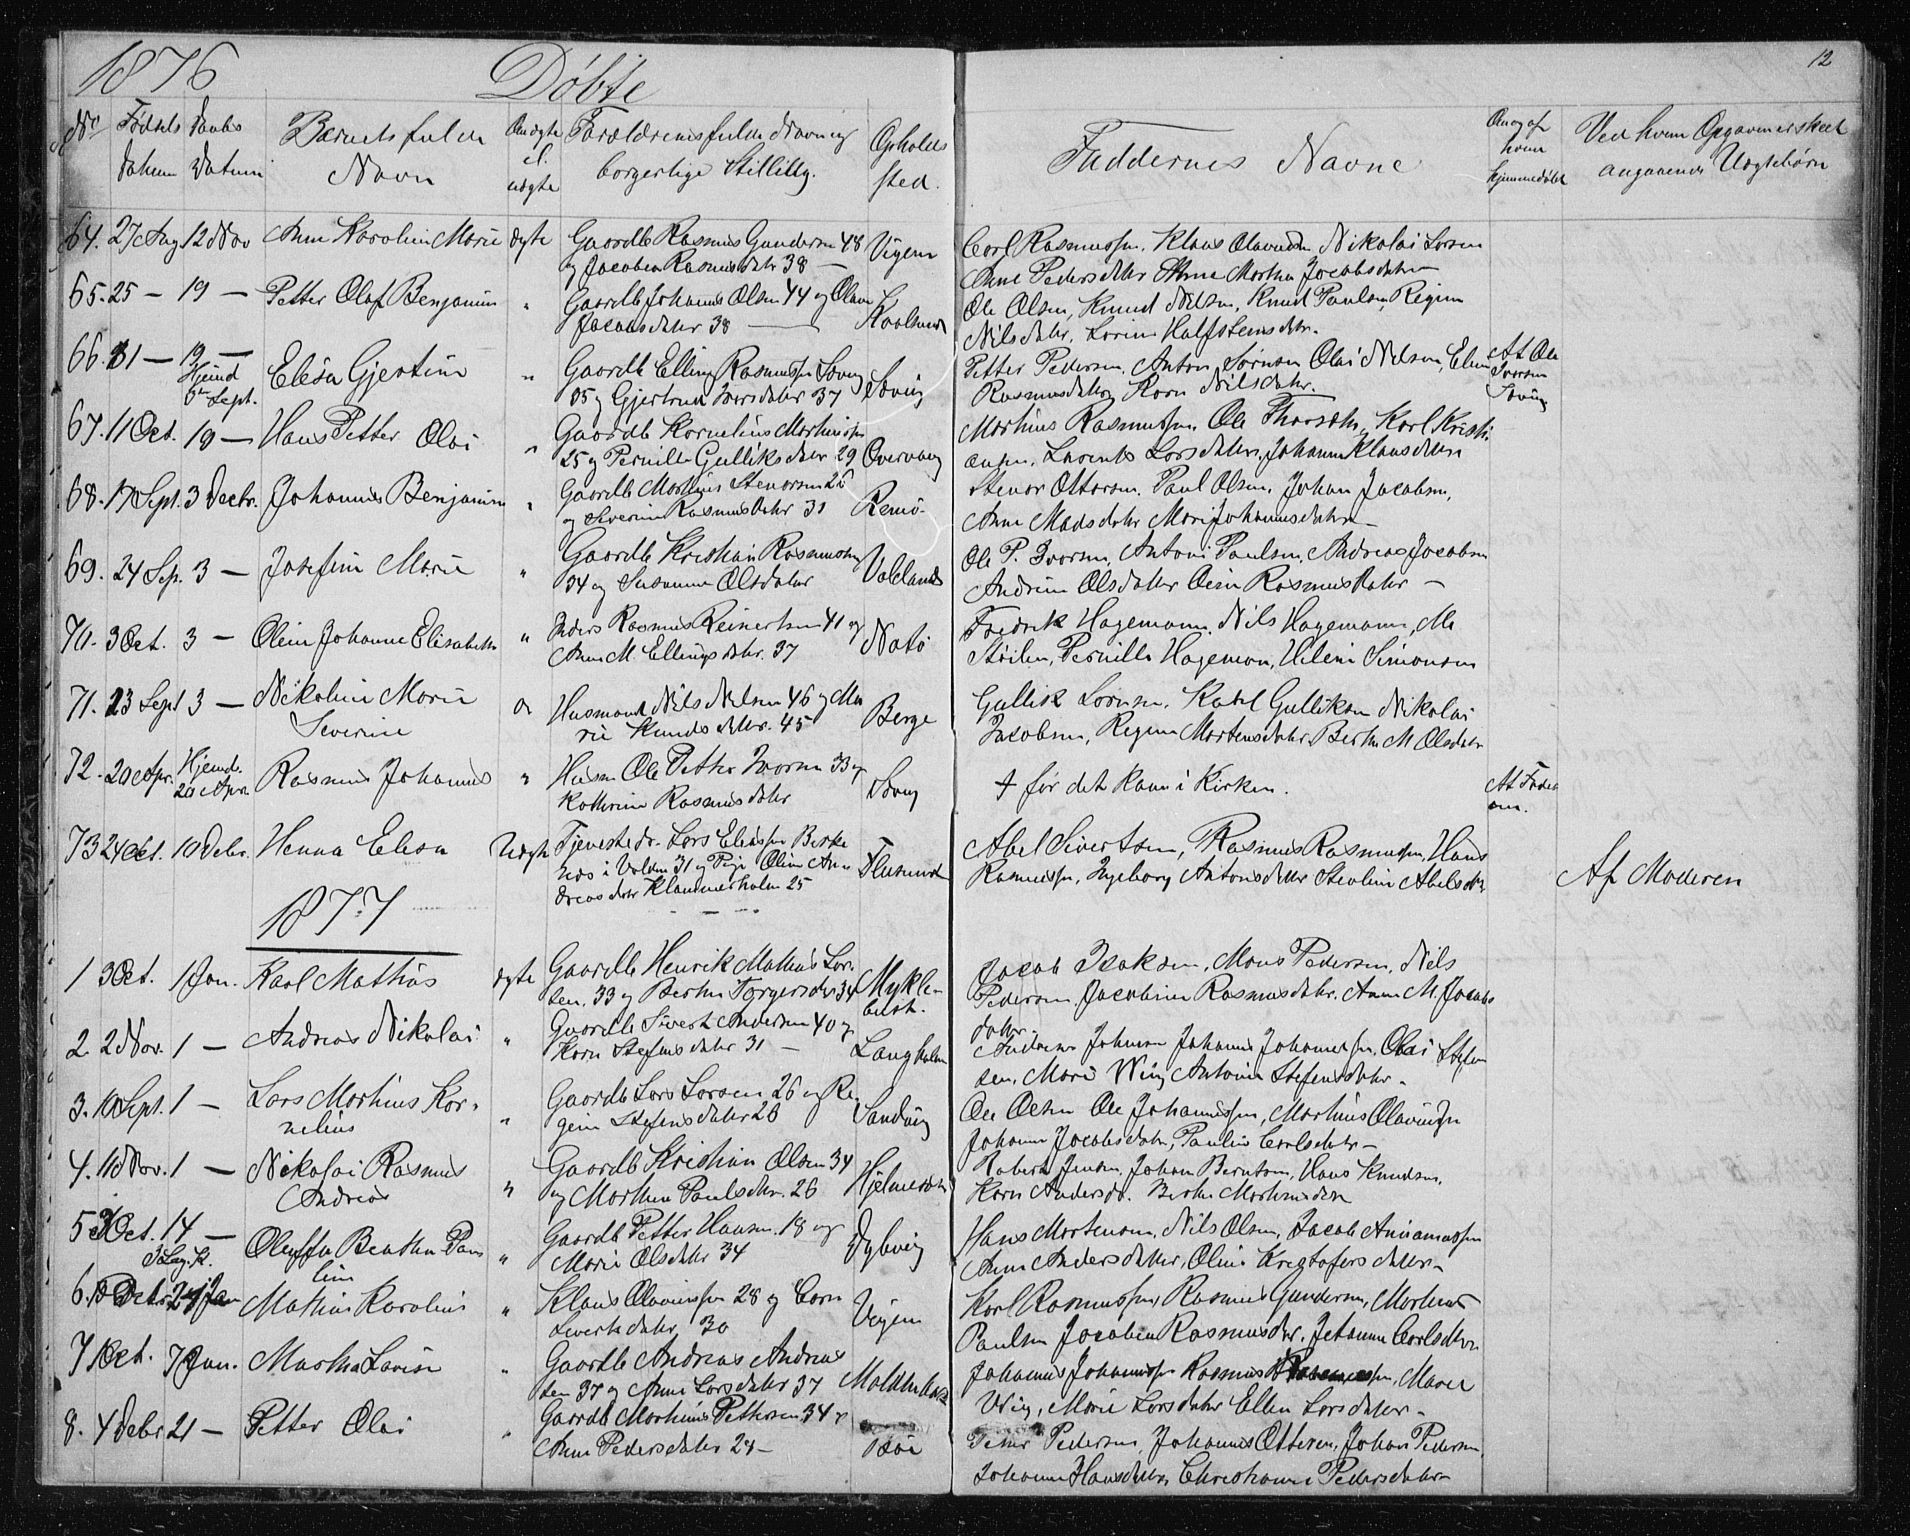 1876
Døbte
12
No
Fødsels Datum
Daabs Datum
Barnets fulde Navn
ægte el. uægte
Forældrenes fulde Navn og borgerlige Stilling.
Opholds sted.
Faddernes Navne
Om og af hvem hjemmedøbt
Ved hvem Opgaven er skeet angaaende Uægtebørn
64. 27 Aug 12 Nov Anne Karoline Marie ægte Gaardb Rasmus Gundersen 48
og Jacobea Rasmusdatr 38 — Vigem
Carl Rasmussen, Klaus Olavussen Nikolai Larsen
Anne Pedersdatter Anne Marthea Jacobsdatter
65. 25 — 19 — Petter Olaf Benjamin " Gaardb Johannes Olsen 44 og Olave
Jacobsdatr 38 —
Ole Olsen, Knud Nilsen, Knud Paulsen, Regine
Nilsdatr. Lorine Halfstensdatr.
66. 31 — 19 — Hjemd 5te Sept. Elesa Gjertine " Gaardb Elling Rasmussen Søvig
35 og Gjertrud Iversdatr 37 Søvig
Petter Pedersen, Anton Sørensen Olai Nilsen, Eline
Rasmusdatr, Karn Nilsdatr.
Af Ole Iversen Søvig
67. 11 Oct. 19 — Hans Petter Olai " Gaardb Kornelius Martinussen
25 og Pernille Gulliksdatr 29 Overvaag
Martinus Rasmussen, Ole Thorseth, Karl Kristi
ansen, Larentse Larsdatter, Johanne Klausdatter
68. 17 Sept. 3 Decbr. Johannes Benjamin " Gaardb Martinus Stenersen 28
og Severine Rasmusdatr 31 Remø
Stener Ottersen, Paul Olsen, Johan Jacobsen,
Anne Madsdatr Mari Johannesdatter —
69. 24 Sep. 3 — Josefine Marie " Gaardb Kristian Rasmussen
34 og Susanne Olsdatter
Ole P. Iversen, Antoni Paulsen, Andreas Jacobsen
Andrine Olsdatter Oline Rasmusdatr —
70. 3 Oct. 3 — Oline Johanne Elisabeth " Inders Rasmus Reinertsen 41 og
Anne M. Ellingsdatr. 37 Notø
Fredrik Hagemann, Nils Hagemann, M
Støilen, Pernille Hageman, Helene Simonsen
71. 23 Sept 3 — Nikoline Marie
Severine Husmand Nils Nilsen 46 og Ma
rie Knudsdatter. 45 Berge
Gullik Larsen, Karl Gulliksen Nikolai
Jacobsen, Regine Mortensdatr Berthe M Olsdatr
72. 20 Apr. Hjemd. 20 Apr. Rasmus Johannes " Husm Ole Petter Iversen 33 og
Kathrine Rasmusdatr Søvig
† før det kom i Kirken.
Af Faderen.
73 24 Oct. 10 Debr. Hanna Elesa Uægte Tjenestedr. Lars Eliassen Birke
næs i Volden 31 og Pige Oline An
dreasdatr Klammerholm 25 Flusund
Abel Sivertsen, Rasmus Rasmussen, Hans
Rasmussen, Ingeborg Antonsdatter Stenline Abelsdtr
Af Moderen
1877
1 3 Oct. 1 Jan. Karl Mathias ægte Gaardb Henrik Mathias Lar
sen. 33 og Berthe Torgersdtr 34 Mykle-
bust.
Jacob Isaksen, Mons Pedersen, Nils
Pedersen, Jacobine Rasmusdatr. Anne M. Jacobs
datr.
2 2 Nov. 1 — Andreas Nikolai " Gaardb Sivert Andersen 40 og
Karn Stefensdatr 31 — Langholm
Andreas Johnsen Johannes Johannessen, Olai Stefen
sen, Mari Wiig Antonie Stefensdatr.
3. 10 Sept. 1 — Lars Martinus Kor-
nelius " Gaardb Lars Larsen 26 og Re
gine Stefensdatr 26 Sandvig
Ole Olsen Ole Johannessen, Martinus Olaussen
Johanne Jacobsdatr, Pauline Carlsdatr —
4. 11 Nov. 1 — Nikolai Rasmus
Andreas " Gaardb Kristian Olsen 34
og Marthea Paulsdtr. 26
Robert Jensen, Johan Berntsen, Hans Knudsen,
Karn Andersdr. Berthe Martinusdatr
5 3 Oct. 14 — Oluffa Beathe Pau
line " Gaardb Petter Hansen 18 og
Marie Olsdatter 34 Dybvig
Hans Mortensen, Nils Olsen, Jacob
Anne Andersdatter, Oline Kristofersdatter —
6. Debr 21 Jan Mathias Karolius " Klaus Olavussen 28 og Karn
Sivertsdatr. 30 Vigem
Karl Rasmussen, Rasmus Gundersen, Martinus
Paulsen Jacobea Rasmusdtr. Johanne Carlsdatter
7 Oct. 7 Jan. Martha Lovise " Gaardb Andreas Andreas
sen 37 og Anne Larsdatr 37
Johannes Johannessen Rasmus Maren
Wiig, Marie Larsdatr Ellen Larsdatter —
8. 4 Debr 21 — Petter Olai " Gaardb Martinus Pettersen 34 og
Anne Pedersdatter 28 — Bøe
Peter Pedersen, Johannes Ottesen, Johan Pedersen
Johanne Hansdatter, Christiane Pedersdatter